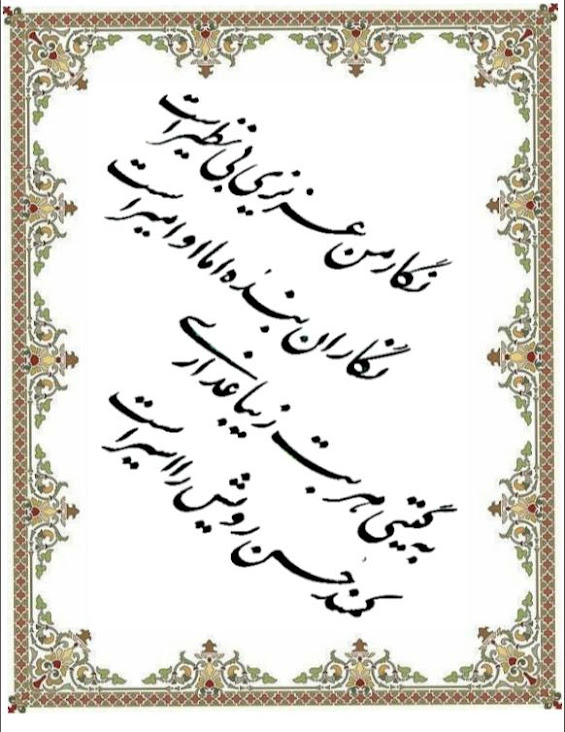 نگار من عزیزی بی نظیر است
نگاران بنده اما او امیر است
به گیتی هر بت زیبا عذاری
کمند حُسن رویش را اسیر است